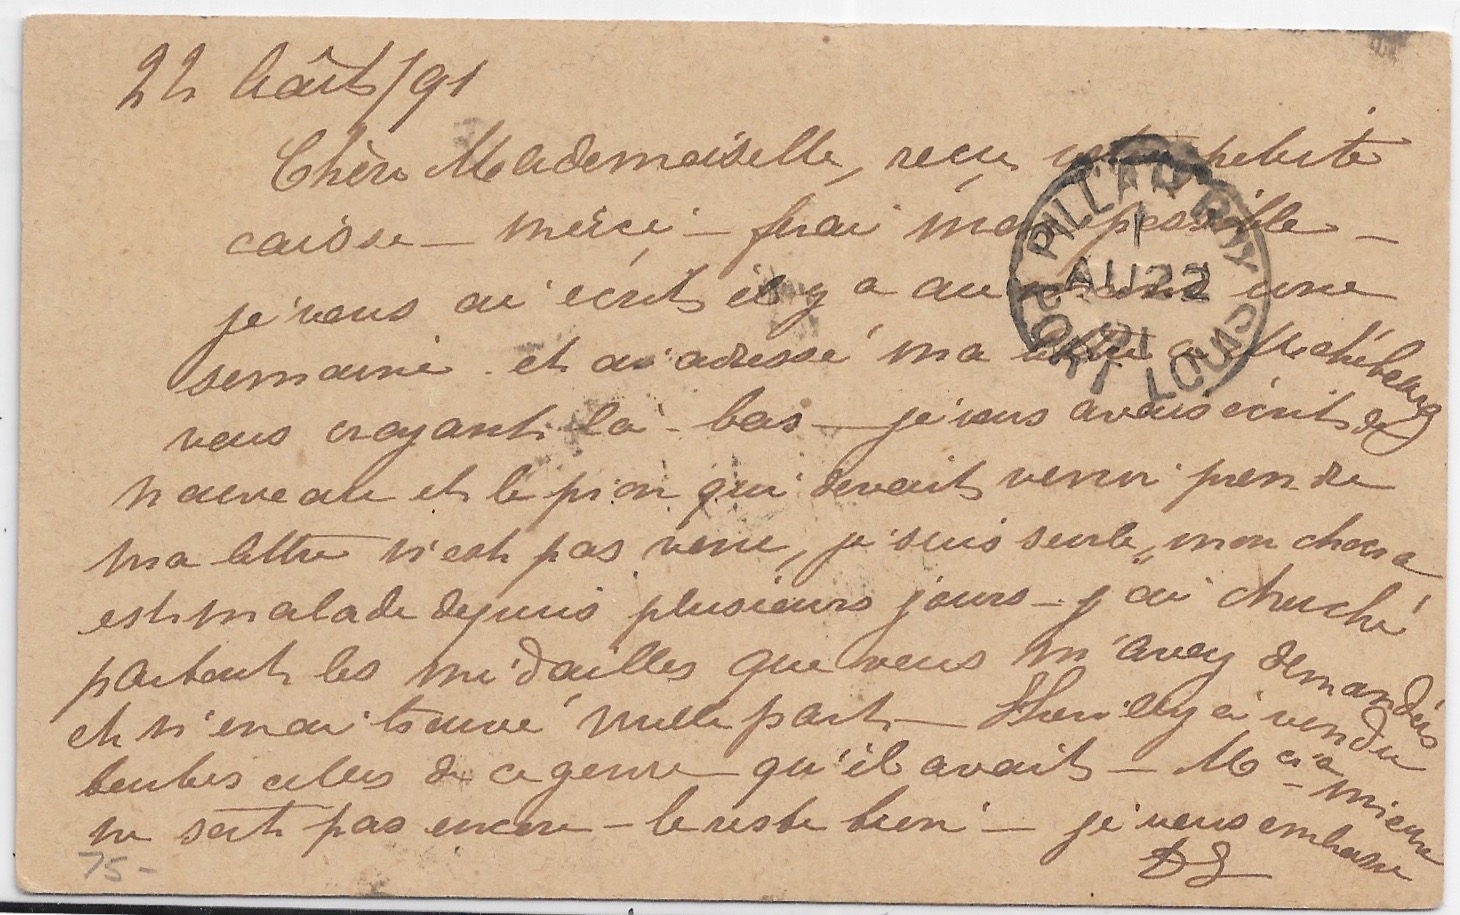 22 Août/91
Chère Mademoiselle, reçu petite
caisse – merci – ferai mon possible –
je vous ai écrit il y a au moins une
semaine et ai adressé ma lettre à Mahébourg
vous croyant là-bas – je vous avais écrit de
nouveau et le pion qui devait venir prendre
ma lettre n'est pas venu, je suis seule,
est malade depuis plusieurs jours – j'ai cherché
partout les médailles que vous m'avez demandées
et n'en ai trouvé nulle part – a vendu
toutes celles de ce genre qu'il avait – mieux
ne sort pas encore – le reste bien – je vous embrasse
PILLAR BOY
1
AU 22
91
PORT LOUIS
75-